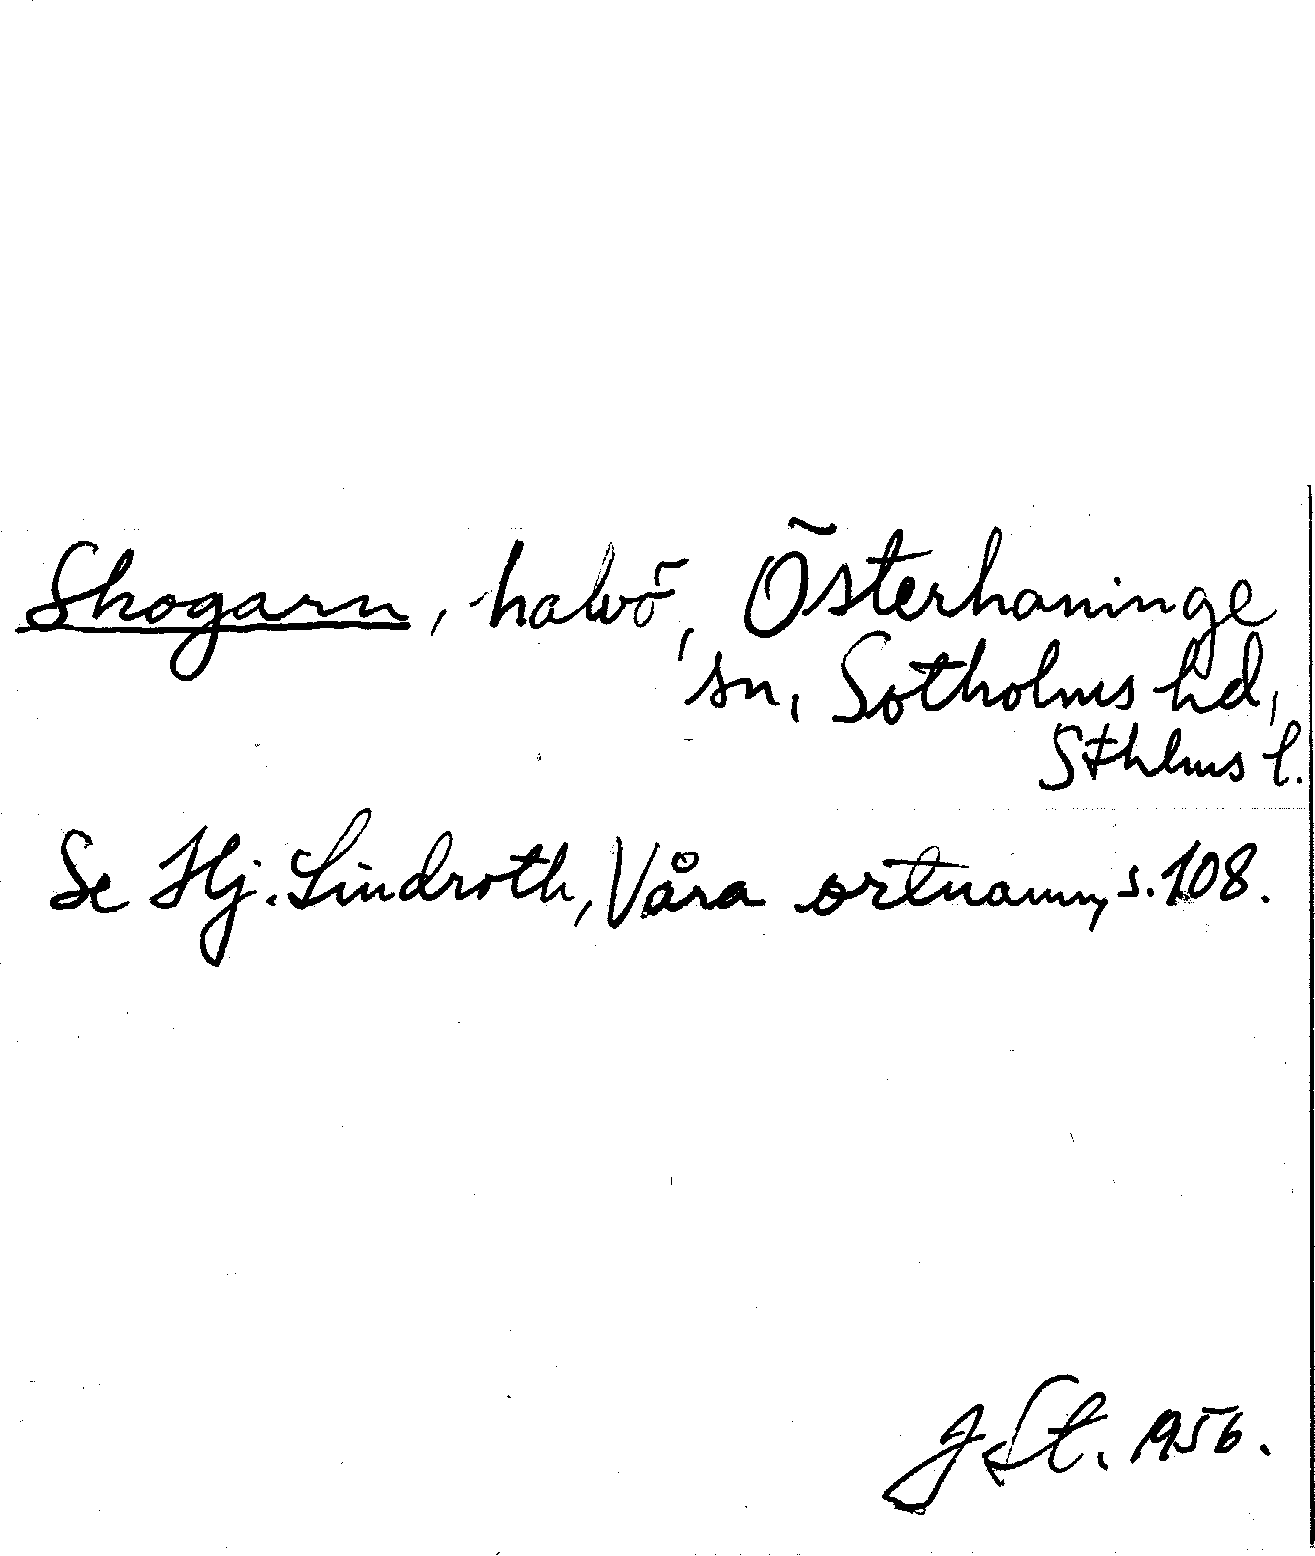 Skogarn, halvö, Österhaninge
sn, Sotholms hd,
Sthlms l.
Se Hj. Lindroth, Våra ortnamn, s. 108.
J St. 1956.